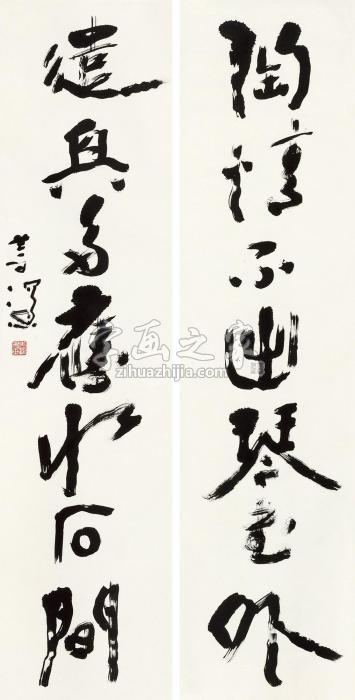 陶情不出琴書外
遣興多應水石間
字画之家
zihuazhijia.com